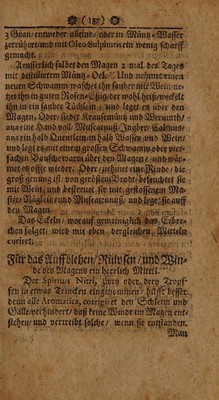 ( 187 )
3 Gran / entweder alleine / oder in Müntz-Wasser
zerrühret / und mit Oleo Sulphuris ein wenig scharff
gemacht.
Aeusserlich salbet den Magen 2 mal des Tages
mit distillirtem Müntz-Oel. Und nehmet einen
neuen Schwamm / waschet ihn sauber mit Wein / ne-
tzet ihn in guten Rosen-Eßig der wohl heiß / wickelt
ihn in ein sauber Tüchlein / und leget es über den
Magen. Oder: siedet Krausemüntz und Wermuth /
ana eine Hand voll / Muscatnuß / Ingber / Galmus /
ana ein halb Quentlein in halb Wasser und Wein /
und leget es mit einem grossen Schwamm oder vier-
fachen Bausche warm über den Magen / und wär-
met es offte wieder. Oder: nehmet eine Rinde /
groß genung ist / von geröstem Brodt / befeuchtet sie
mit Wein / und bestreuet sie mit gestossenem Ma-
stix / Näglein / und Muscatennuß / und leget sie auff
den Magen.
Das Eckeln / worauf gemeiniglich das Erbre-
chen folget / wird mit eben dergleichen Mitteln
curiret.
Für das Auffblehen / Rülpsen / und Win-
de des Magens ein herrlich Mittel.
Der Spiritus Nitri, zwey oder drey Tropf-
fen in etwas Trincken eingenommen / hilfft besser
denn alle Aromatica, corrigiret den Schleim und
Galle / verhindert / daß keine Winde im Magen ent-
stehen / und vertreibt solche / wenn sie entstanden.
Man